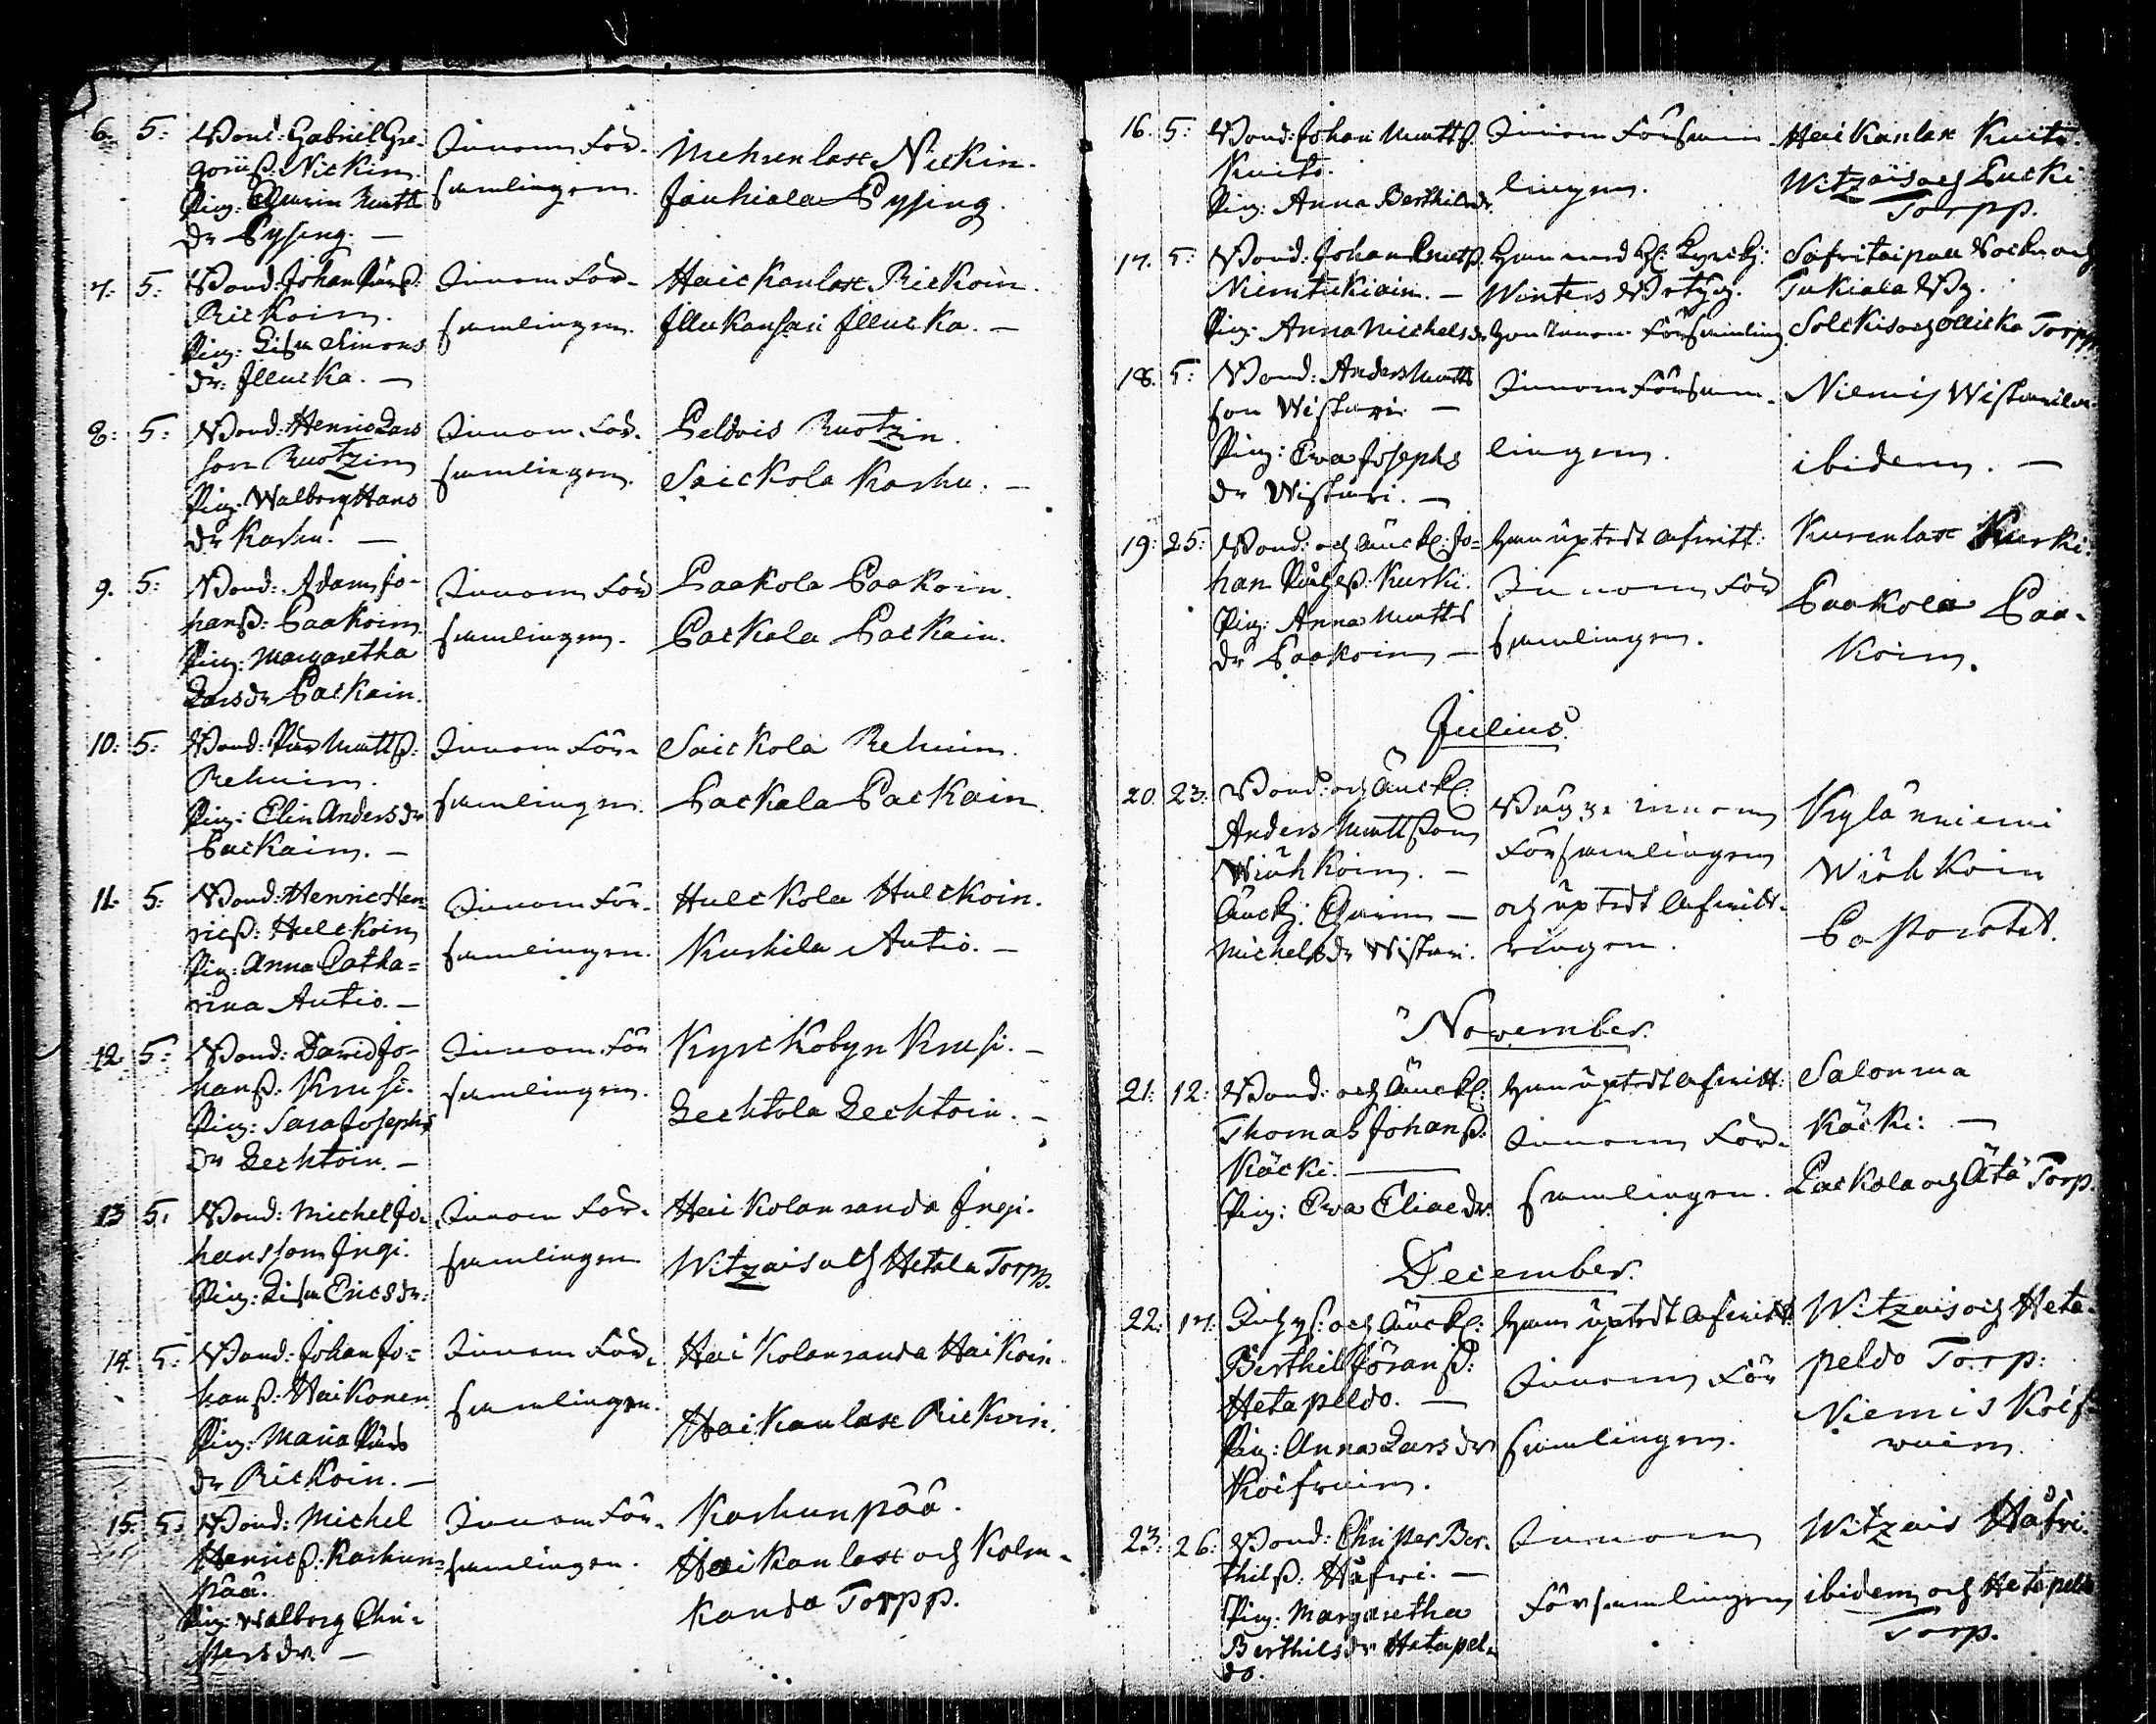 6. 5: Bond: Gabriel Gre-
goriiß: Nickin.
Pig: Matts
dr Pysing. —
Innom För-
samlingen.
Mehrenlax Nickin.
Jouhiala Pysing.
7: 5: Bond: Johan Pärß:
Rickoin.
Pig: Lisa Simons
dr: Illucka. —
Innom För-
samlingen.
Haickanlax Rickoin.
Illukansari Illucka. —
8: 5: Bond: Henric Lars
son Ruotzin
Pig: Walborg Hans
dr Karhu. —
Innom För-
samlingen.
Peldois Ruotzin.
Saickola Karhu. —
9. 5: Bond: Adam Jo-
hanß: Paakoin.
Pig: Margaretha
Larsdr Packain.
Innom För
samlingen.
Paakola Paakoin.
Packala Packain.
10: 5: Bond: Pär Mattß:
Rehuin.
Pig: Elin Andersdr
Packain. —
Innom För-
samlingen.
Saickola Rehuin.
Packala Packain.
11. 5: Bond: Henric Hen-
ricß: Hulckoin
Pig: Anna Catha=
rina Autio. —
Innom För-
samlingen.
Hulckola Hulckoin.
Kurkila Autio. —
12. 5: Bond: David Jo-
hanß: Krusi.
Pig: Sara Josephs
dr Lechtoin. —
Innom För
samlingen.
Kyrckobyn Krusi. —
Lechtola Lechtoin. —
13 5: Bond: Michel Jo-
hansson Ingi.
Pig: Lisa Ericsdr:
Innom För-
samlingen
Haikolanranda Ingi.
Witzais och Hetala Torpp.
14. 5: Bond: Johan Jo=
hanß: Haikonen
Pig: Maria Pärs
dr Rickoin. —
Innom För-
samlingen.
Haikolanranda Haikoin.
Haikanlax Rickoin.
15: 5: Bond: Michel
Henricß: Karhun=
pää.
Pig: Walborg Chri-
stersdr. —
Innom För-
samlingen.
Karhunpää.
Haikanlax och Kolm-
kanda Torpp.
16. 5: Bond: Johan Mattß.
Kuito.
Pig: Anna Berthilsdr.
Innom Försam-
lingen.
Haikanlax Kuito.
Witzais och Lucki
Torpp.
17. 5: Bond: Johan Knutß.
Niemtukiain. —
Pig: Anna Michelsdr
Han med H: Kyrckh:
Winters Betyg.
Hon Innom Församling
Safvitaipaa Sockn och
Tukiala By.
Solckis och Torpp.
18. 5: Bond: Anders Matts
son Wistari —
Pig: Eva Josephs
dr Wistari. —
Innom Försam-
lingen.
Niemis Wistarila.
ibidem. —
19: 25: Bond: och Änckl: Jo=
han Kurki.
Pig: Anna Matts
dr Paakoin —
Han uptedt afwitt:
Innom För
samlingen.
Kurenlax Kurki.
Paakola Paa-
koin.
Julius.
20. 23: Bond: och Änckl:
Anders Mattsson
Wiuhkoin. —
Änck: —
Michelsdr Wistari.
Bägge innom
Församlingen
och uptedt afwitt-
ringen.
Kylänniemi
Wiuhkoin
Pastoratet.
November.
21: 12: Bond: och Änckl:
Thomas Johanß.
Käcki. —
Pig: Eva Eliaedr.
Han uptedt afwitt:
Innom För-
samlingen.
Salonma
Käcki: —
Packola och Ätä Torp.
December.
22: 17: Inhys: och Änckl:
Berthil Jöranß:
Hetapeldo. —
Pig: Anna Larsdr
Koifwuin.
Han uptedt afwitt:
Innom För
samlingen.
Witzais och Heta-
peldo Torp:
Niemis Koif-
wuin.
23: 26: Bond: Christer Ber-
thilß: Häfwi. —
Pig: Margaretha
Berthilsdr Hetapel-
do.
Innom
Församlingen
Witzais Häfwi.
ibidem och Hetapeldo
Torp.